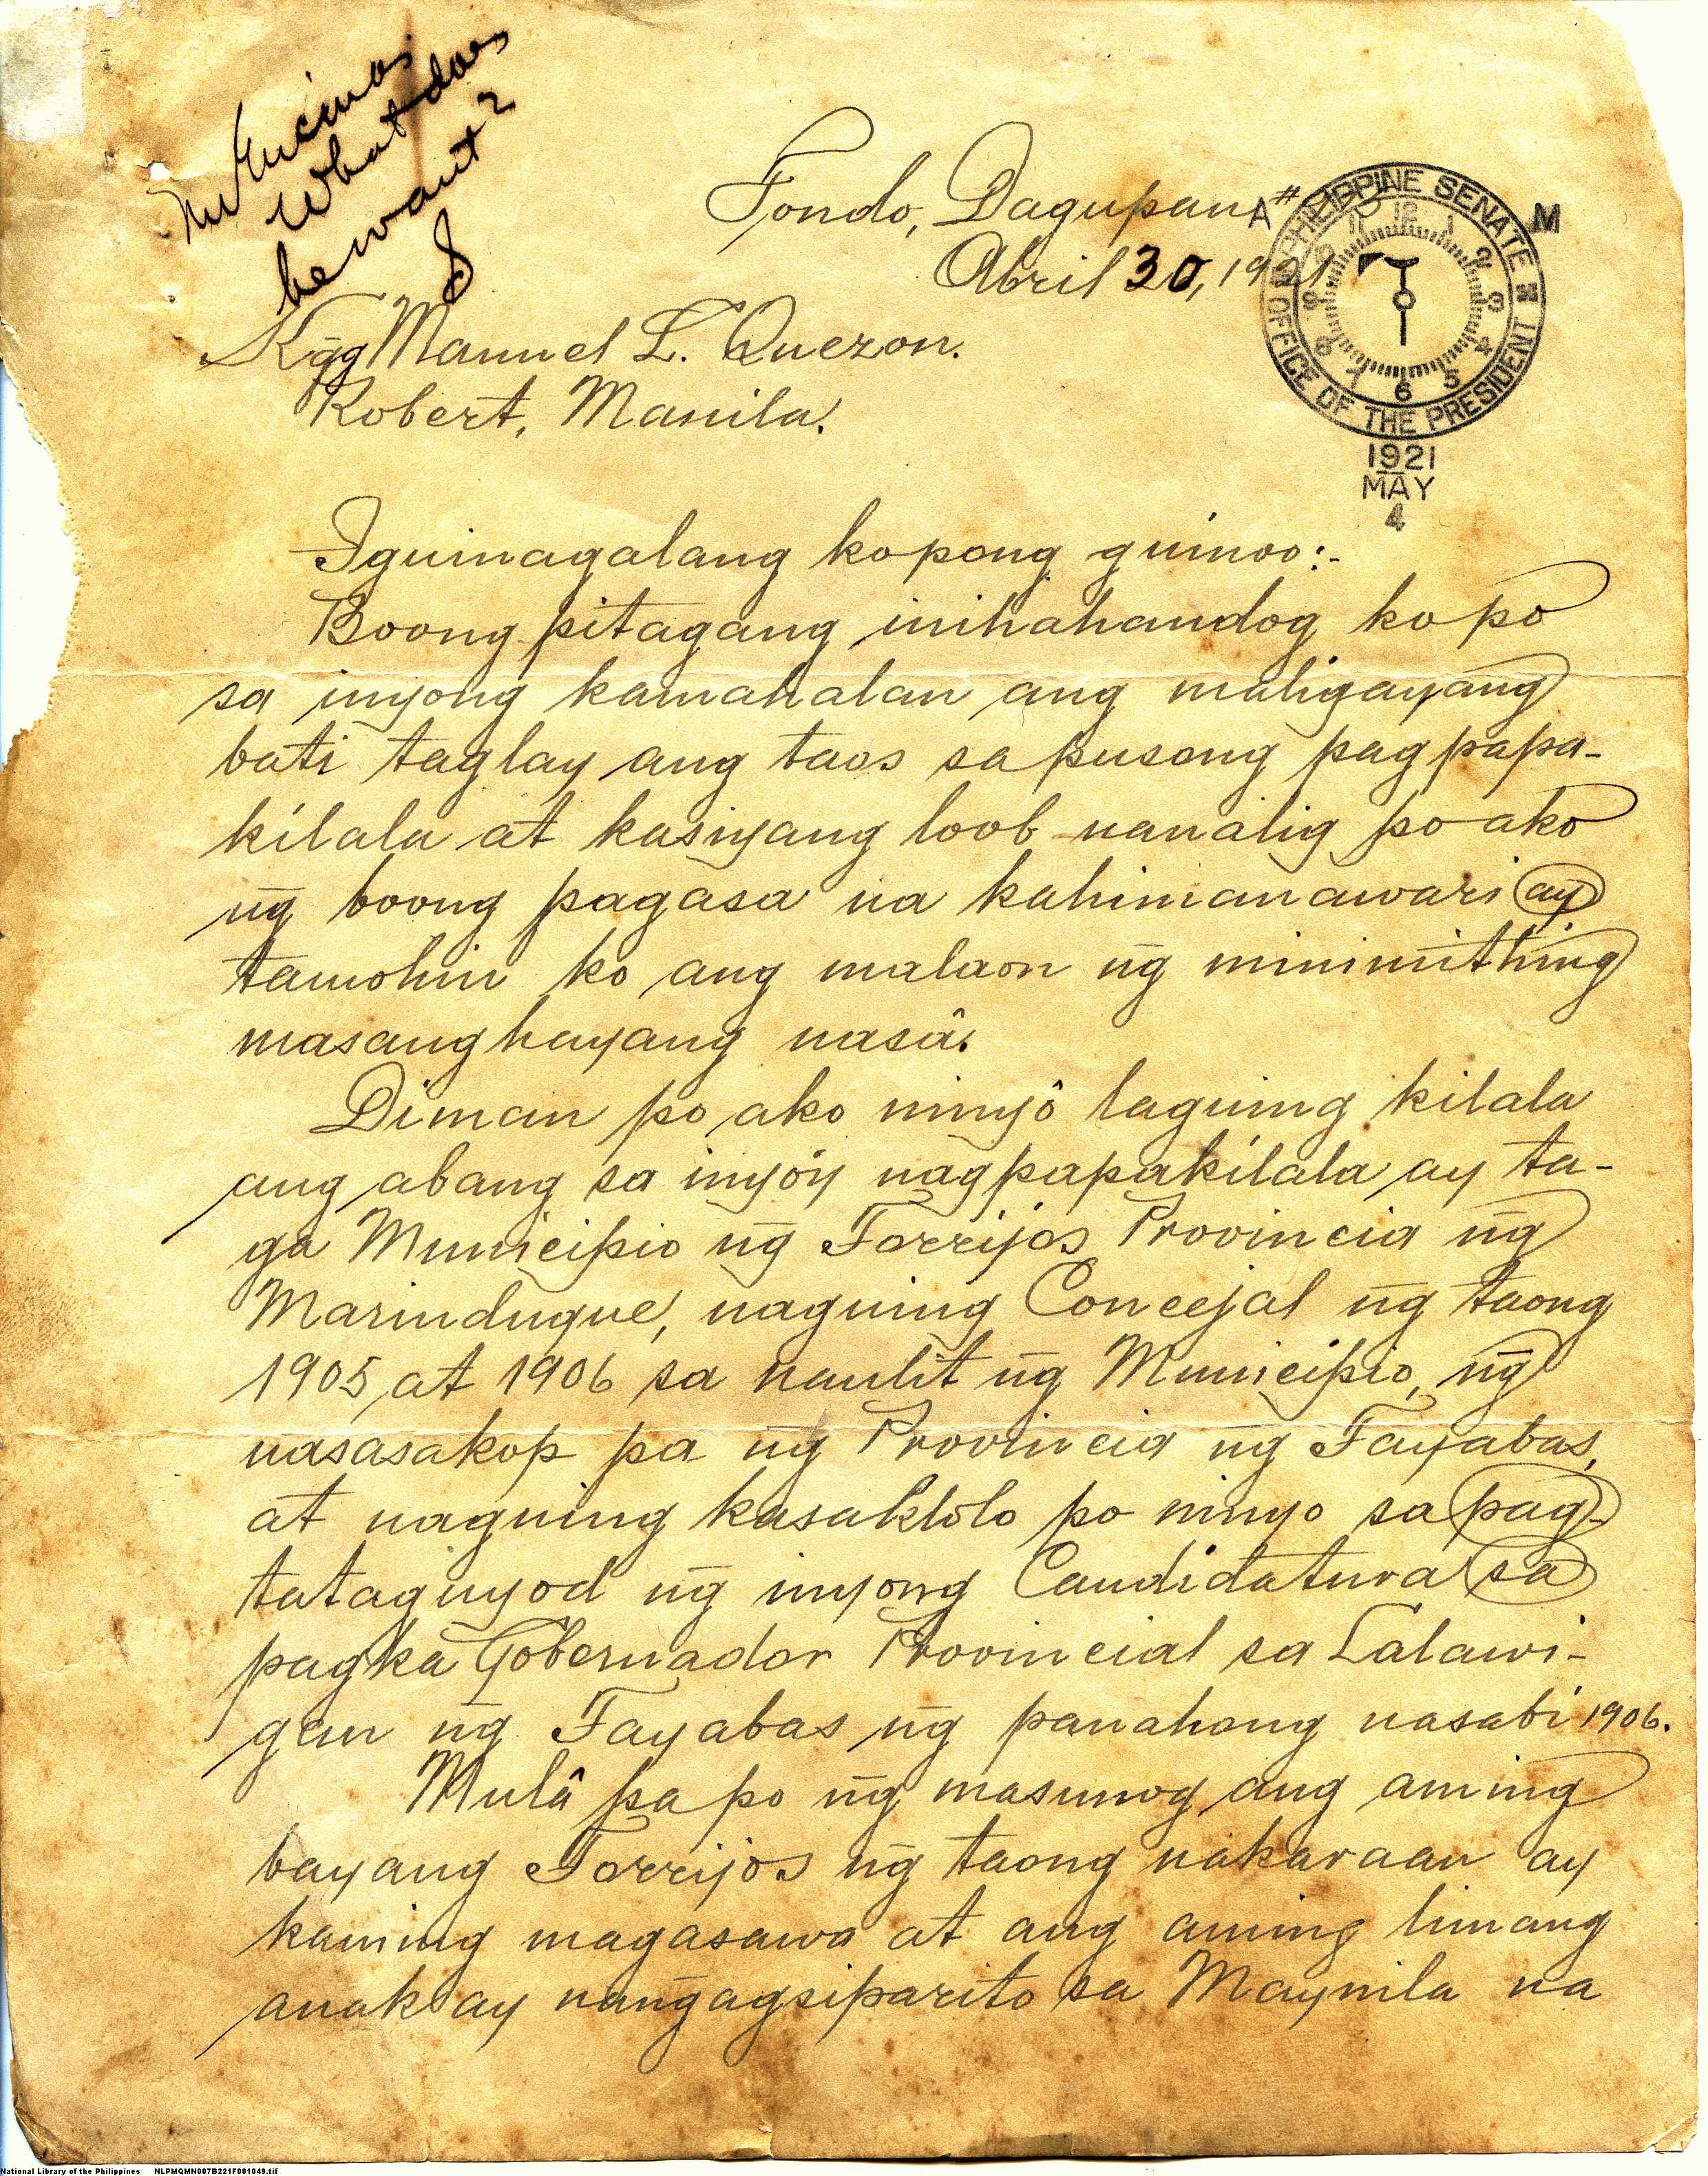 Mr Encinas
What does
he want?
Tondo, Dagupan #
Abril 30, 1921.
A M
PHILIPPINE SENATE
OFFICE OF THE PRESIDENT
12 1 2 3 4 5 6 7 8 9 10 11
1921
MAY
4
Kgg Manuel L. Quezon.
Robert, Manila.
Iguinagalang ko pong guinoo:-
Boong pitagang inihahandog ko po
sa inyong kamahalan ang maligayang
bati taglay ang taos sa pusong pagpapa-
kilala at kasiyang loob nanalig po ako
n̄g boong pagasa na kahimanawari ay
tamohin ko ang malaon n̄g minimithing
masanghayang nasâ.
Diman po ako ninyô laguing kilala
ang abang sa inyóy nagpapakilala ay ta-
ga Municipio n̄g Torrijos Provincia n̄g
Marinduque, naguing Concejal n̄g taong
1905 at 1906 sa naulit n̄g Municipio, n̄g
nasasakop pa n̄g Provincia n̄g Tayabas,
at naguing kasaklolo po ninyo sa pag-
tataguyod n̄g inyong Candidatura sa
pagka Gobernador Provincial sa Lalawi-
gan n̄g Tayabas n̄g panahong nasabi 1906.
Mulâ pa po n̄g masunog ang aming
bayang Torrijos n̄g taong nakaraan ay
kaming magasawa at ang aming limang
anak ay nan̄gagsiparito sa Maynila na
National Library of the Philippines NLPMQMN007B221F001049.tif